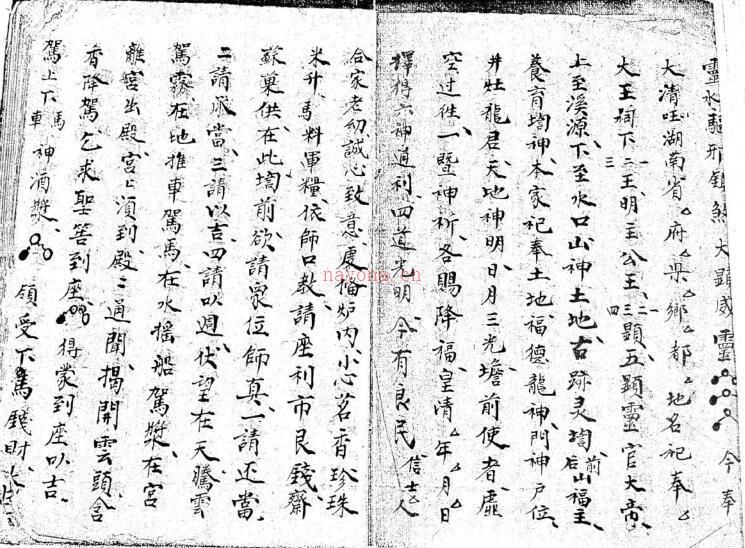 靈水驅邪鎮煞大顯威靈 今奉
大清呸湖南省△府△県△鄉△都△地名祀奉△
大王祠下一二三王明王公王一二三四顯五顯靈官大帝
上至溪源下至水口山神土地古跡灵塇前后山福主
養育塇神本家祀奉土地福德龍神門神戶位
井灶龍君天地神明日月三光簷前使者虛
空过徃一暨神祈各賜降福皇清△年△月△日
擇得六神通利四道光明今有良民信士△人
合家老幼誠心致意處俻炉内小心茗香珍珠
米升馬料軍糧依師口教請座利市艮錢齋
蘇菓供在此塇前欲請衆位師真一請还當
二請永當三請以吉四請以週伏望在天騰雲
駕霧在地推車駕馬在水摇船駕槳在宮
離宮出殿宮上湏到殿二通聞揭開雲頭含
香降駕乞求聖筶到座得蒙到座以吉
駕上下馬車神酒漿領受下馬錢財
nayona.cn